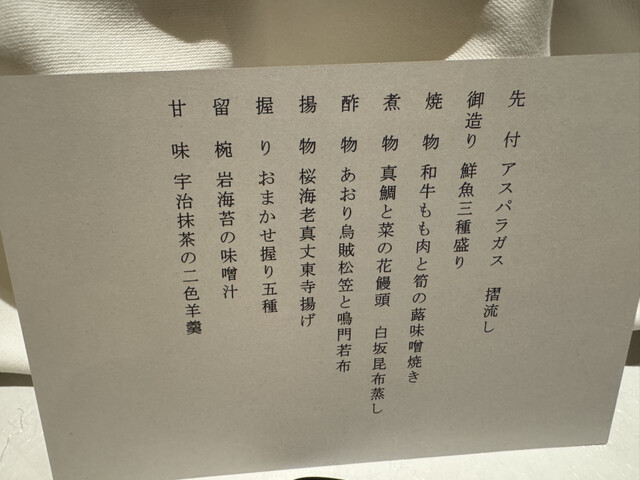 先付 アスパラガス 摺流し
御造り 鮮魚三種盛り
焼物 和牛もも肉と筍の蕗味噌焼き
煮物 真鯛と菜の花饅頭 白坂昆布蒸し
酢物 あおり烏賊松笠と鳴門若布
揚物 桜海老真丈東寺揚げ
握り おまかせ握り五種
留椀 岩海苔の味噌汁
甘味 宇治抹茶の二色羊羹